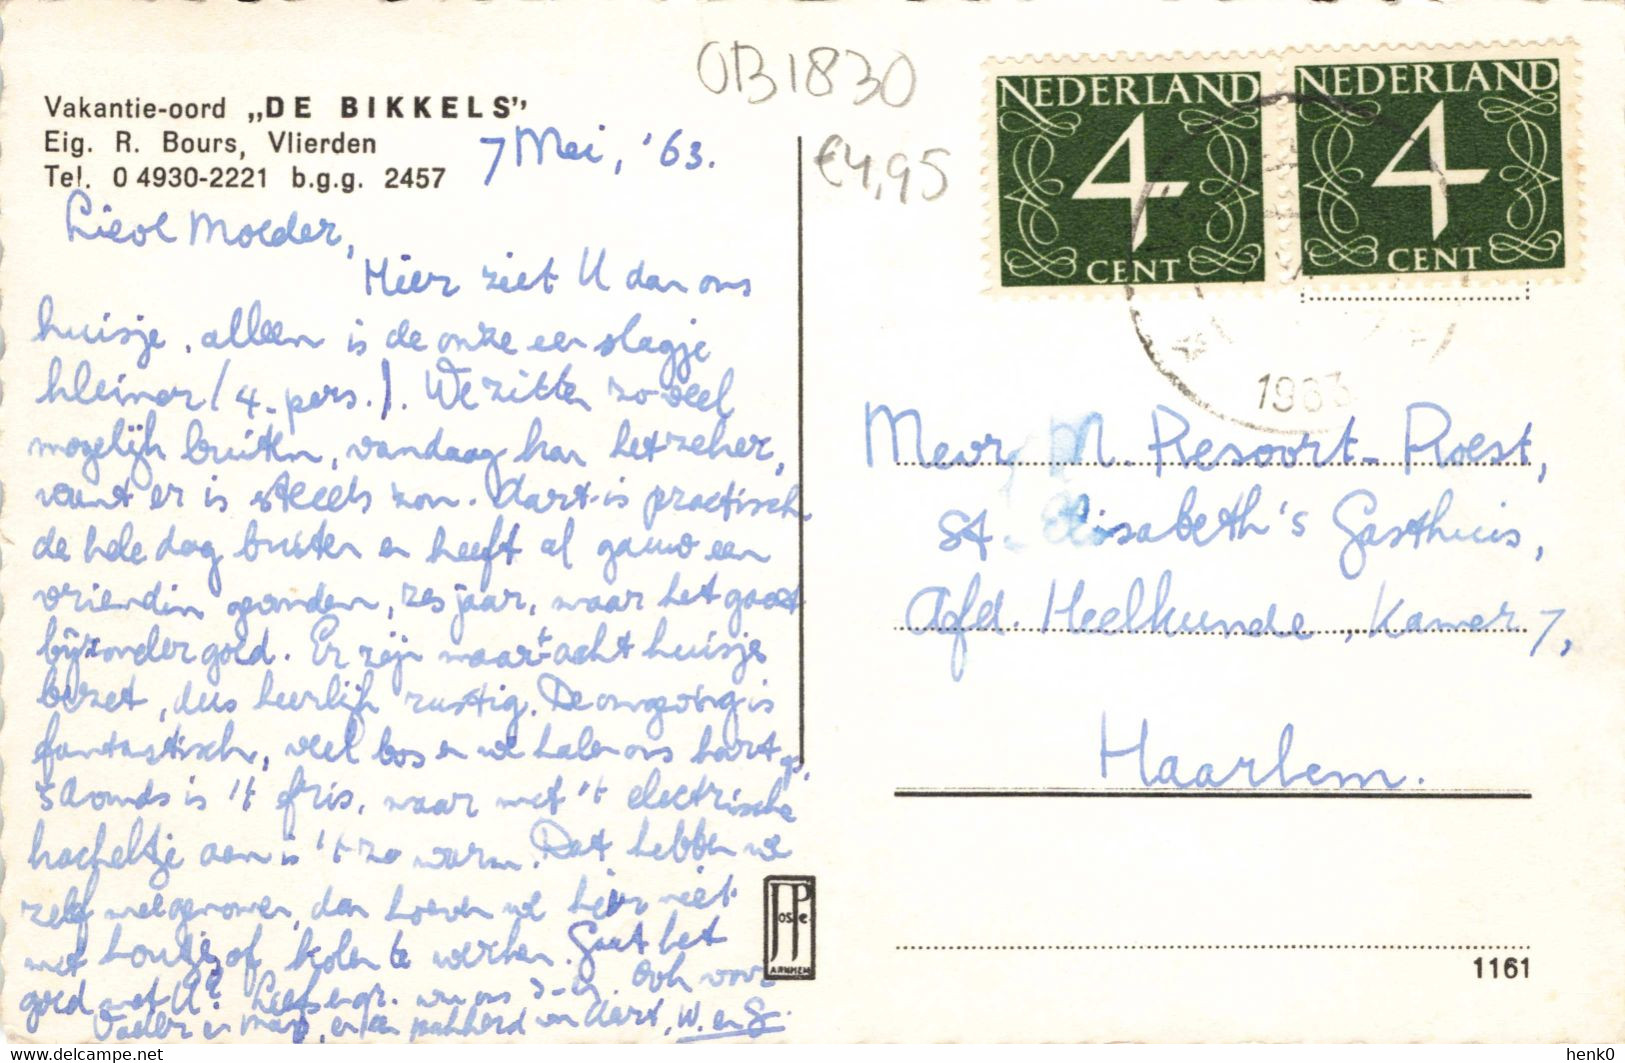 Vakantie-oord „DE BIKKELS”
Eig. R. Bours, Vlierden
Tel. 0 4930-2221 b.g.g. 2457
7 Mei, '63.
OB1830
€4,95
NEDERLAND
4
CENT
NEDERLAND
4
CENT
1963
Lieve Moeder,
Hier ziet U dan ons
huisje, alleen is de onze een slagje
kleiner (4-pers.). We zitten zoveel
mogelijk buiten, vandaag kan het zeker,
want er is steeds zon. Aart is practisch
de hele dag buiten en heeft al gauw een
vriendin gevonden, zes jaar, waar het gaat
bijzonder goed. Er zijn maar acht huisjes
bezet, dus heerlijk rustig. De omgeving is
fantastisch, veel bos en we halen ons hart op,
's Avonds is 't fris, maar met 't electrische
kacheltje aan is 't zo warm. Dat hebben we
zelf meegenomen, dan hoeven we hier niet
met houtjes of kolen te werken. Gaat het
goed met U? Liefs en gr. van ons 3-en. Ook voor
Vader en en een pakkerd van Aart, W. en G.
Mevr. M. Resoort-Roest,
St. Elisabeth's Gasthuis,
Afd. Heelkunde, Kamer 7,
Haarlem.
JosPe
ARNHEM
1161
henk0
https://www.delcampe.net